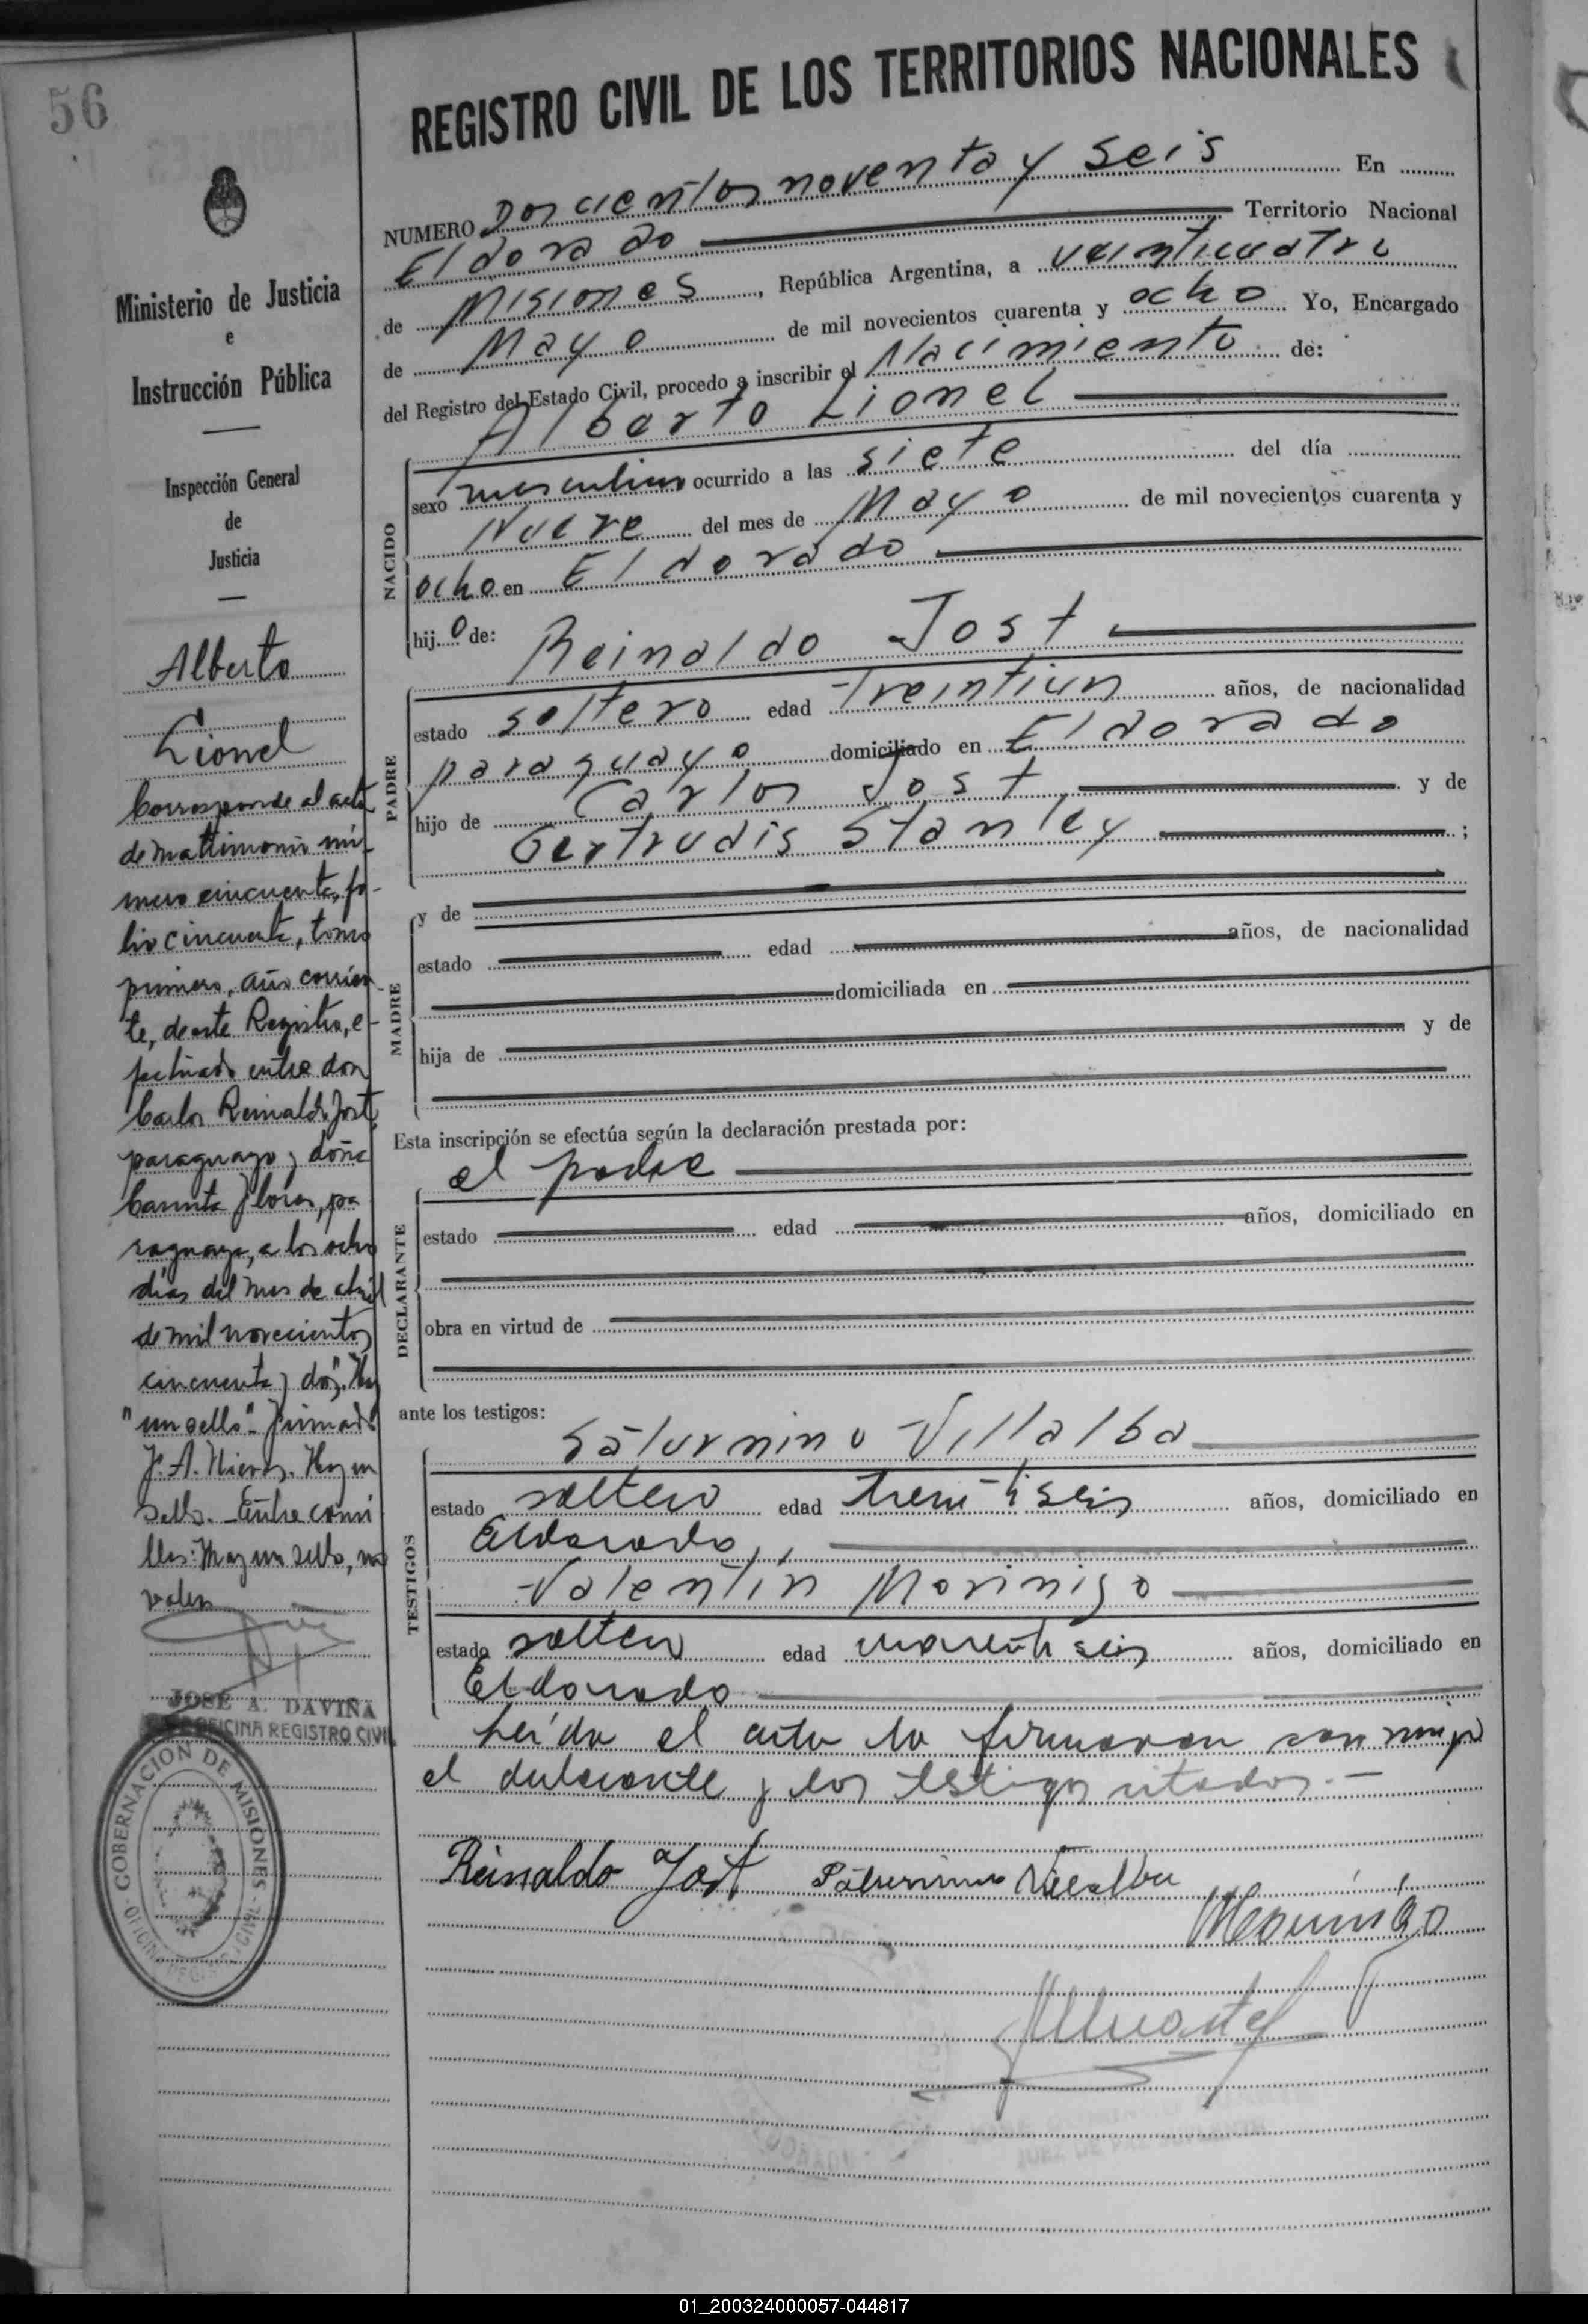 56
Ministerio de Justicia
e
Instrucción Pública
Inspección General
de
Justicia
Alberto
Lionel
Corresponde al acta
de matrimonio nú-
mero cincuenta, fo-
lio cincuenta, tomo
primero, año corrien-
te, de este Registro, e-
fectuado entre don
Carlos Reinaldo Jost,
paraguayo y doña
Flores, pa
raguaya, a los ocho
días del mes de abril
de mil novecientos
cincuenta y dos". Hay
"un sello". Firmado
J. A. Hay un
sello. Entre comi
llas: Hay un sello, no
valen
JOSE A. DAVIÑA
OFICINA REGISTRO CIVIL
GOBERNACION DE MISIONES
REGISTRO CIVIL DE LOS TERRITORIOS NACIONALES
NUMERO Doscientos noventa y seis En
Eldorado Territorio Nacional
de Misiones, República Argentina, a veinticuatro
de Mayo de mil novecientos cuarenta y ocho Yo, Encargado
del Registro del Estado Civil, procedo a inscribir el Nacimiento de:
Alberto Lionel
NACIDO
sexo masculino ocurrido a las siete del día
Nueve del mes de Mayo de mil novecientos cuarenta y
ocho en Eldorado
hijo de: Reinaldo Jost
PADRE
estado soltero edad Treintiun años, de nacionalidad
paraguayo domiciliado en Eldorado
hijo de Carlos Jost y de
Gertrudis Stanley ;
MADRE
y de
estado edad años, de nacionalidad
domiciliada en
hija de y de
Esta inscripción se efectúa según la declaración prestada por:
el padre
DECLARANTE
estado edad años, domiciliado en
obra en virtud de
ante los testigos:
Saturnino Villalba
TESTIGOS
estado soltero edad treintiseis años, domiciliado en
Eldorado
Valentín Morinigo
estado soltero edad cuarentiseis años, domiciliado en
Eldorado
Leída el acta la firmaron conmigo
el declarante y los testigos citados.-
Reinaldo Jost Saturnino Villalba
VMorinigo
01_200324000057-044817